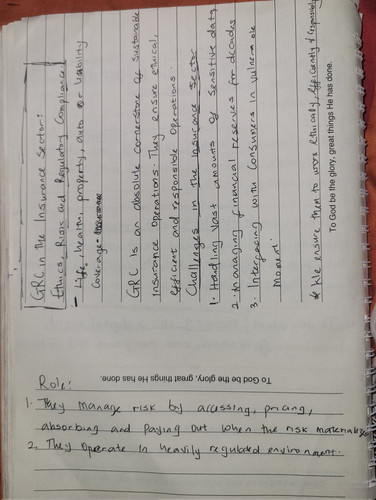 GRC in the Insurance Sector:
Ethics, Risk and Regulatory Compliance
- Life, health, property, auto or liability
Coverage - Insurance
GRC is an absolute cornerstone of sustainable
insurance operations. They ensure ethical,
efficient and responsible operations.
Challenges in the Insurance Sector
1. Handling vast amounts of sensitive data
2. Managing financial reserves for decades
3. Interfacing with Consumers in vulnerable
Moment.
* We ensure them to work ethically, efficiently & responsibly
To God be the glory, great things He has done.
To God be the glory, great things He has done.
Role:
1. They manage risk by accessing, pricing,
absorbing and paying out when the risk materialize
2. They operate in heavily regulated environment.